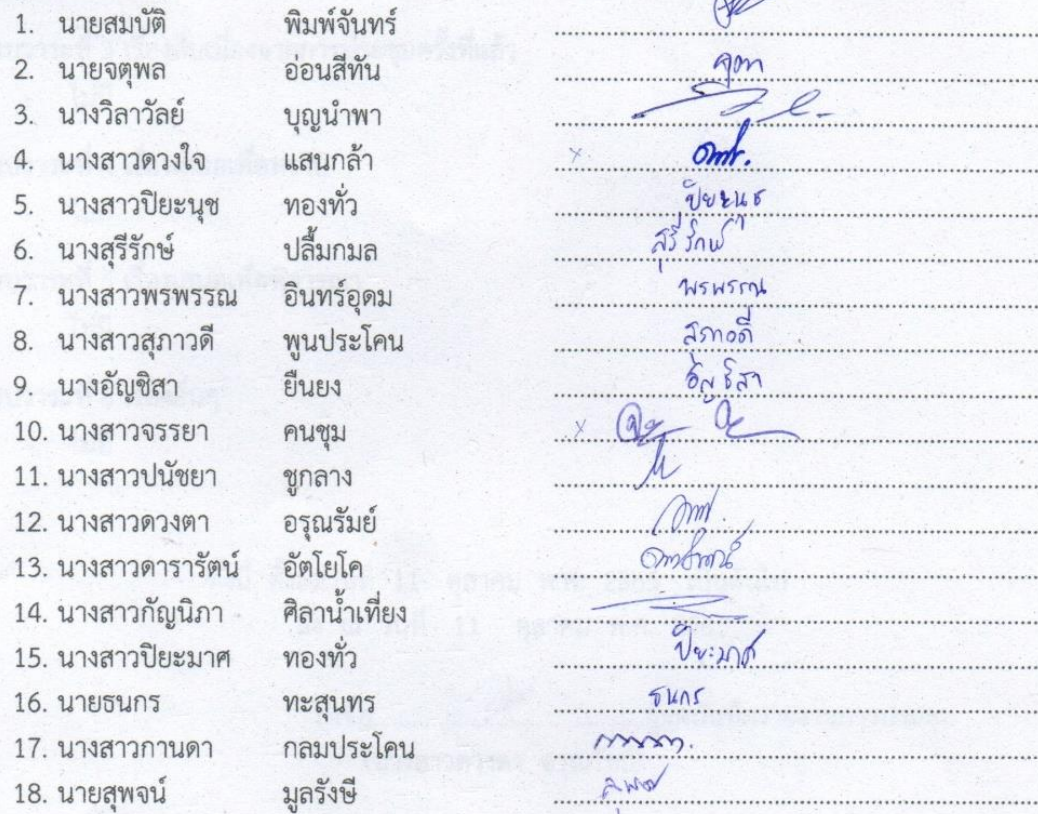 1. นายสมบัติ พิมพ์จันทร์
2. นายจตุพล อ่อนสีทัน
3. นางวิลาวัลย์ บุญนำพา
4. นางสาวดวงใจ แสนกล้า
5. นางสาวปิยะนุช ทองทั่ว ปิยะนุช
6. นางสุรีรักษ์ ปลื้มกมล สุรีรักษ์
7. นางสาวพรพรรณ อินทร์อุดม พรพรรณ
8. นางสาวสุภาวดี พูนประโคน สุภาวดี
9. นางอัญชิสา ยืนยง อัญชิสา
10. นางสาวจรรยา คนชุม
11. นางสาวปนัชยา ชูกลาง
12. นางสาวดวงตา อรุณรัมย์
13. นางสาวดารารัตน์ อัตโยโค
14. นางสาวกัญนิภา ศิลาน้ำเที่ยง
15. นางสาวปิยะมาศ ทองทั่ว ปิยะมาศ
16. นายธนกร ทะสุนทร ธนกร
17. นางสาวกานดา กลมประโคน
18. นายสุพจน์ มูลรังษี